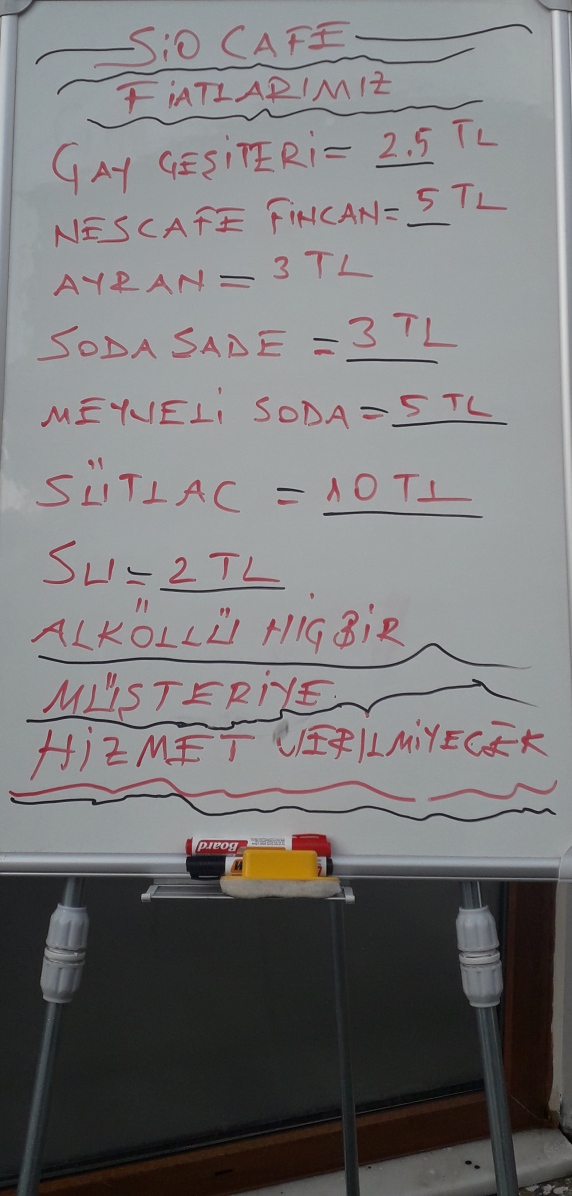 SİO CAFE
FİATLARIMIZ
ÇAY ÇEŞİTERİ = 2.5 TL
NESCAFE FİNCAN = 5 TL
AYRAN = 3 TL
SODA SADE = 3 TL
MEYVELİ SODA = 5 TL
SÜTLAC = 10 TL
SU = 2 TL
ALKÖLLÜ HİÇBİR
MÜŞTERİYE
HİZMET VERİLMİYECEK
Board